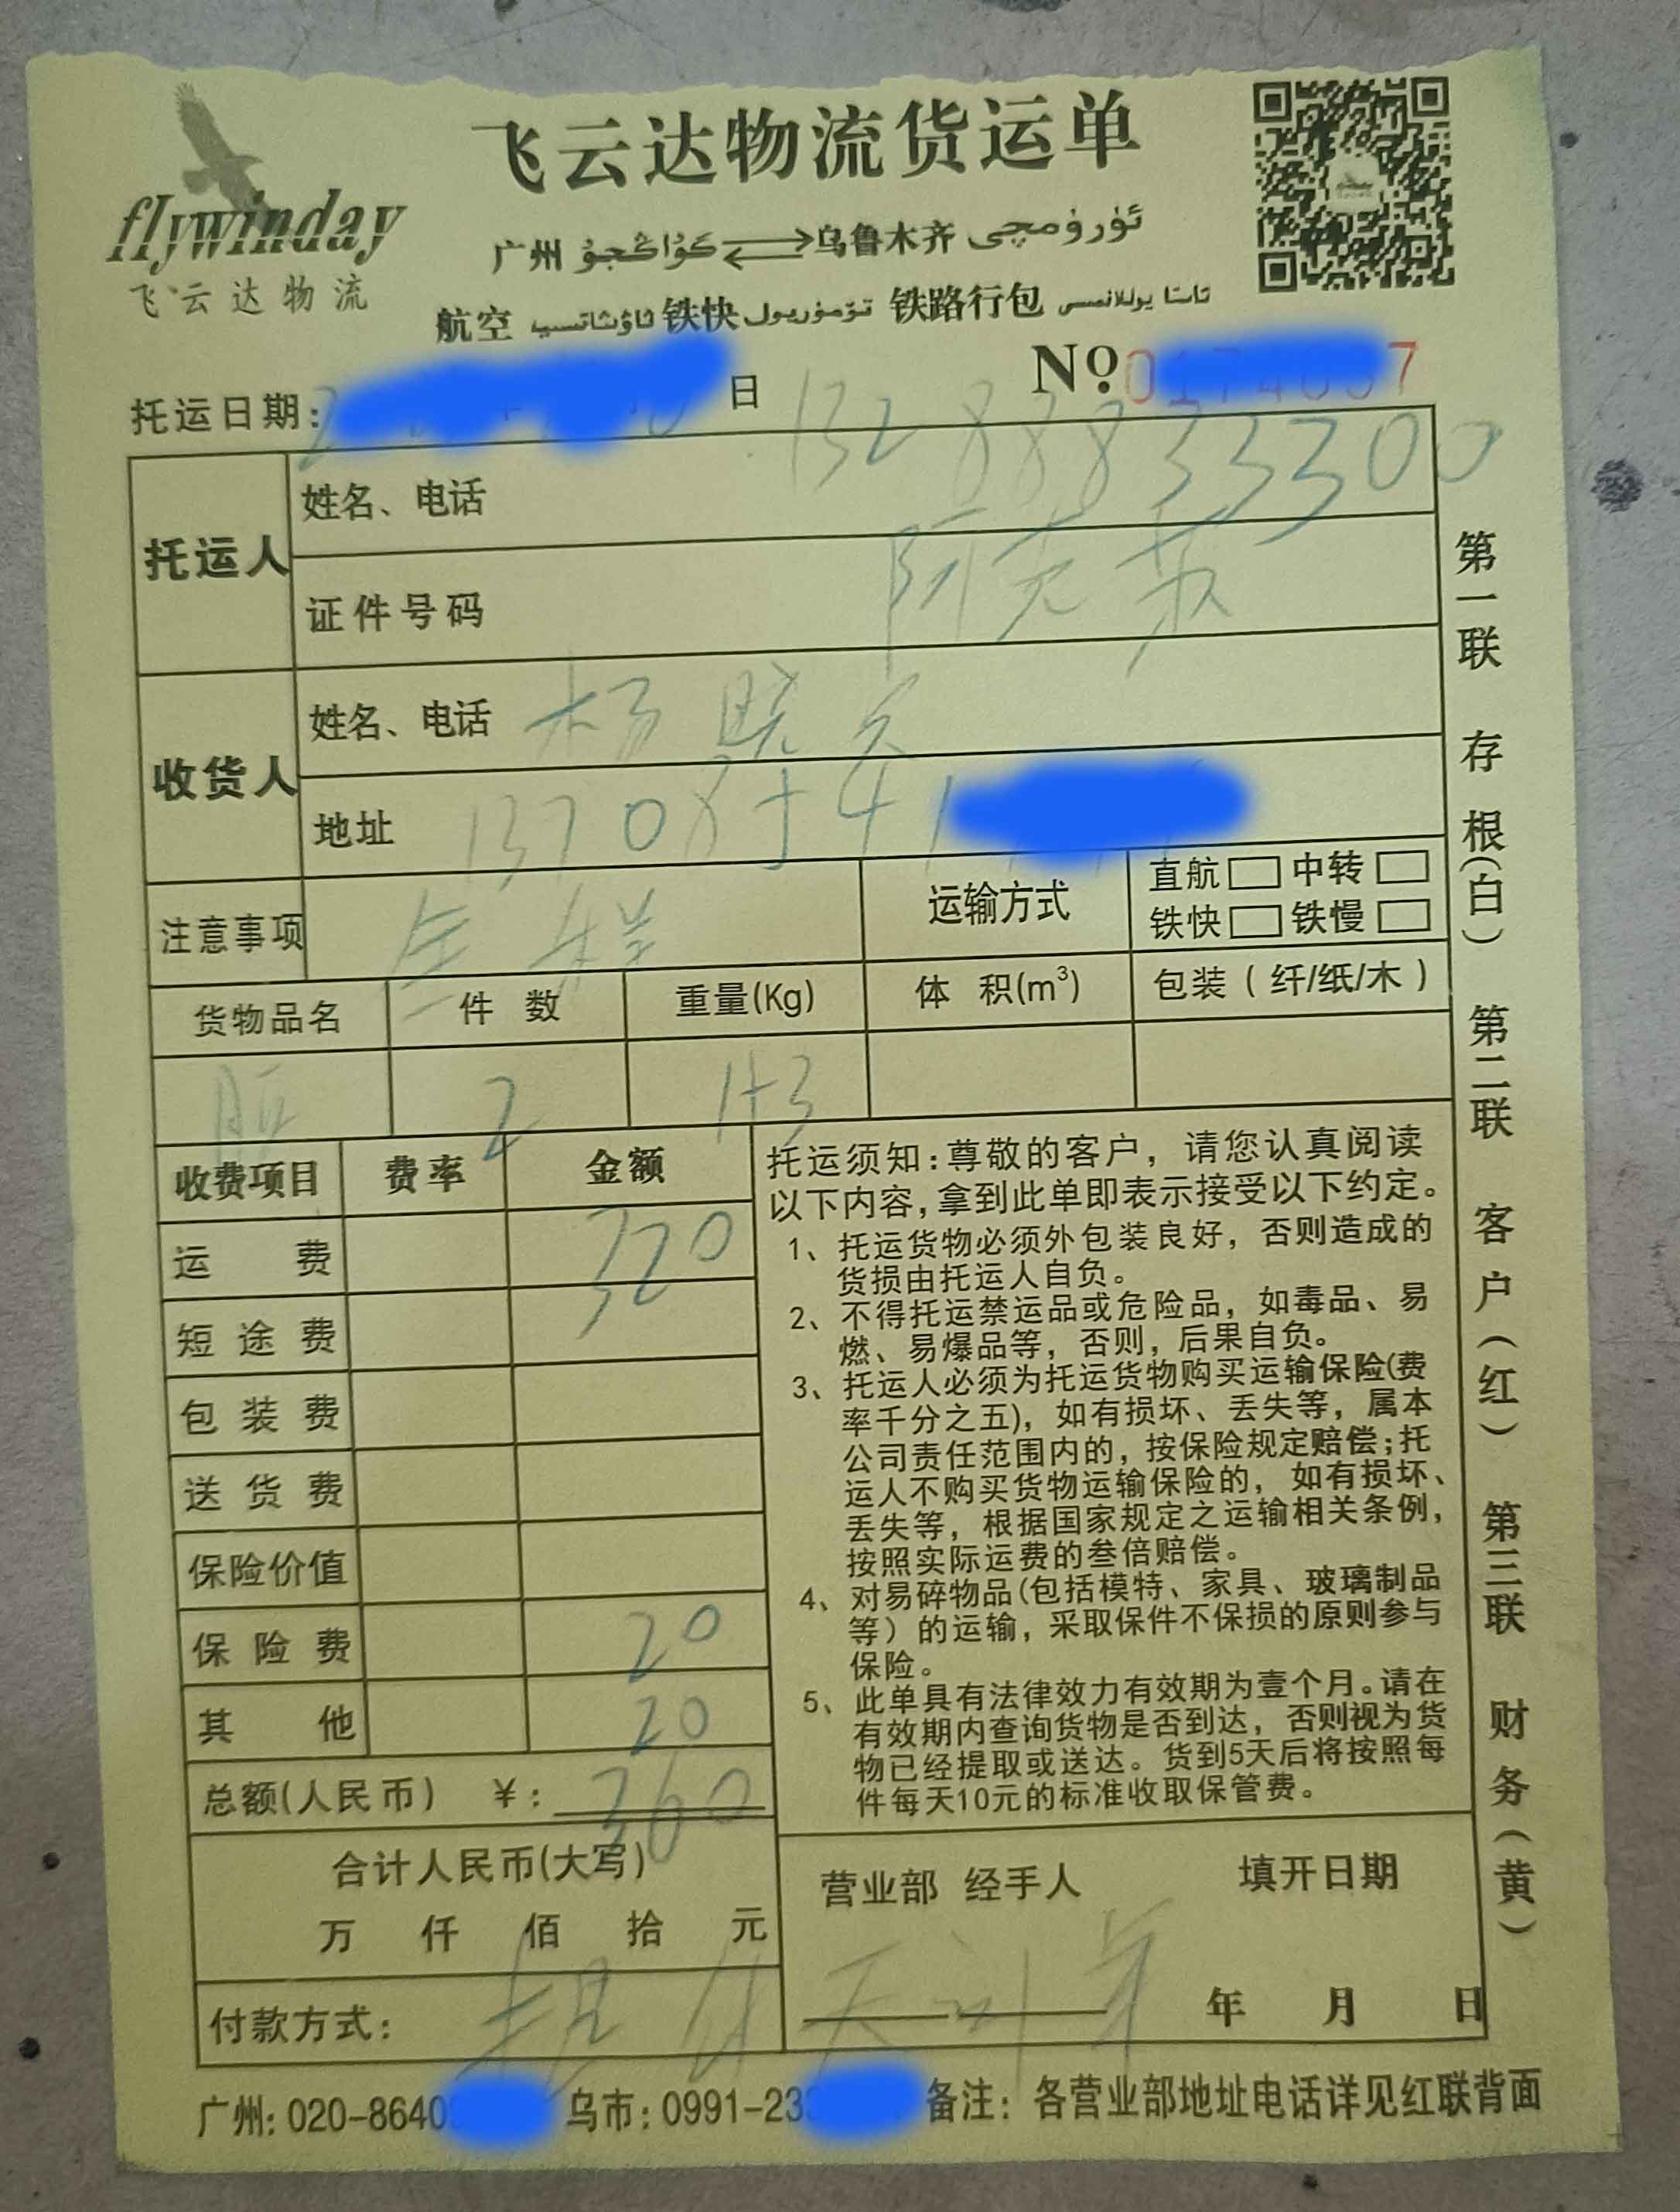 flywinday
飞云达物流
飞云达物流货运单
广州 گۇاڭجۇ 乌鲁木齐 ئۈرۈمچى
航空 铁快 تۆمۈريول 铁路行包
托运日期: 日
No
托运人
姓名、电话 13288833300
证件号码 阿克苏
收货人
姓名、电话 杨晓
地址 13708
注意事项
运输方式
直航 中转
铁快 铁慢
货物品名 件数 重量(Kg) 体积(m³) 包装(纤/纸/木)
2 143
收费项目 费率 金额
运费 320
短途费
包装费
送货费
保险价值
保险费 20
其他 20
总额(人民币) ¥: 360
合计人民币(大写)
万 仟 佰 拾 元
付款方式: 提付
托运须知:尊敬的客户,请您认真阅读
以下内容,拿到此单即表示接受以下约定。
1、托运货物必须外包装良好,否则造成的
货损由托运人自负。
2、不得托运禁运品或危险品,如毒品、易
燃、易爆品等,否则,后果自负。
3、托运人必须为托运货物购买运输保险(费
率千分之五),如有损坏、丢失等,属本
公司责任范围内的,按保险规定赔偿;托
运人不购买货物运输保险的,如有损坏、
丢失等,根据国家规定之运输相关条例,
按照实际运费的叁倍赔偿。
4、对易碎物品(包括模特、家具、玻璃制品
等)的运输,采取保件不保损的原则参与
保险。
5、此单具有法律效力有效期为壹个月。请在
有效期内查询货物是否到达,否则视为货
物已经提取或送达。货到5天后将按照每
件每天10元的标准收取保管费。
营业部 经手人 填开日期
年 月 日
第一联 存根(白) 第二联 客户(红) 第三联 财务(黄)
广州: 020-8640 乌市: 0991-23 备注: 各营业部地址电话详见红联背面